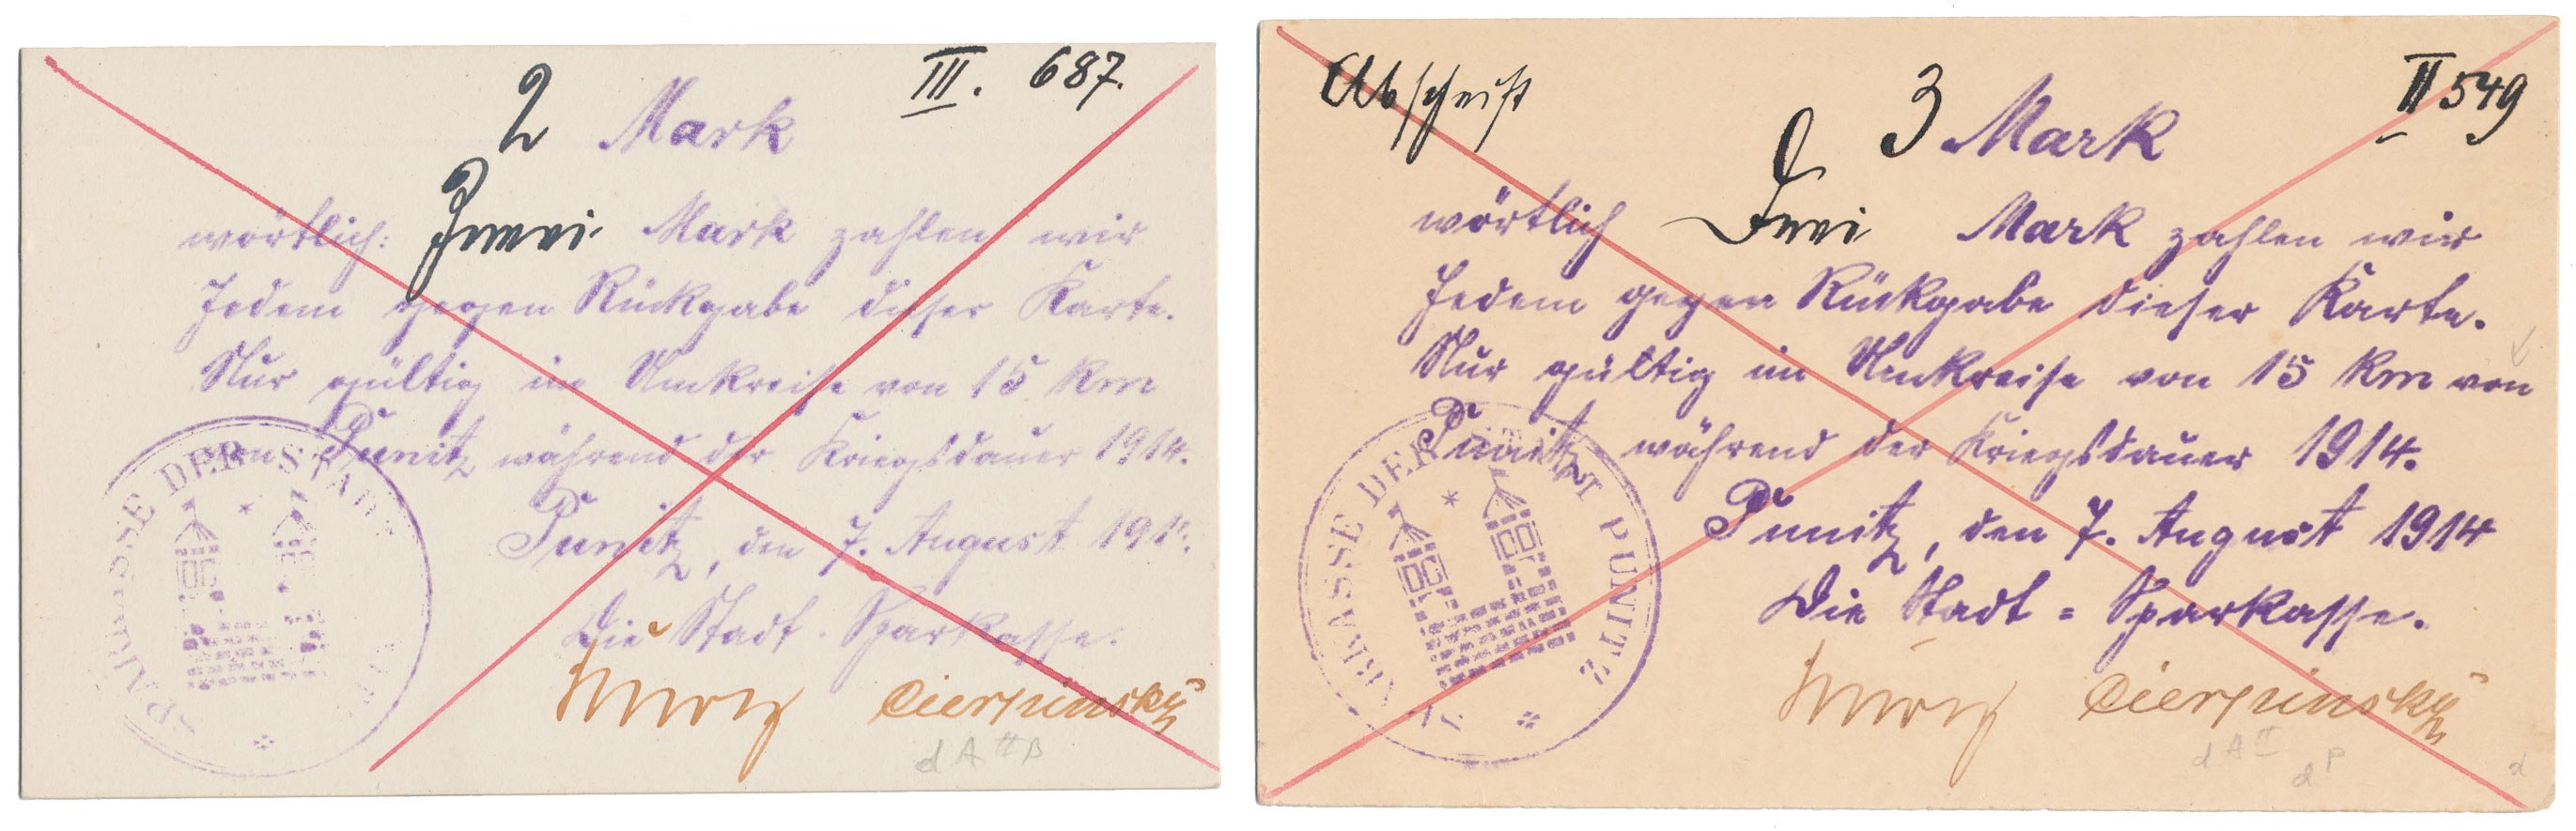 III. 687.
2 Mark
wörtlich: Zwei Mark zahlen wir
Jedem gegen Rückgabe dieser Karte.
Nur gültig im Umkreise von 15 km
von Punitz während der Kriegsdauer 1914.
Punitz, den 7. August 191
Die Stadt-Sparkasse.
Cierpinsky
SPARKASSE DER STADT
Abschrift
II 549
3 Mark
wörtlich Drei Mark zahlen wir
Jedem gegen Rückgabe dieser Karte.
Nur gültig im Umkreise von 15 km von
Punitz während der Kriegsdauer 1914.
Punitz, den 7. August 1914
Die Stadt=Sparkasse.
Cierpinsky
SPARKASSE DER STADT PUNITZ